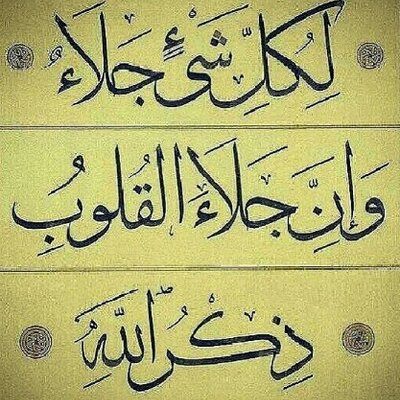 لِكُلِّ شَیْءٍ جَلَاءٌ
وَإِنَّ جَلَاءَ الْقُلُوبِ
ذِكْرُ اللّٰهِ